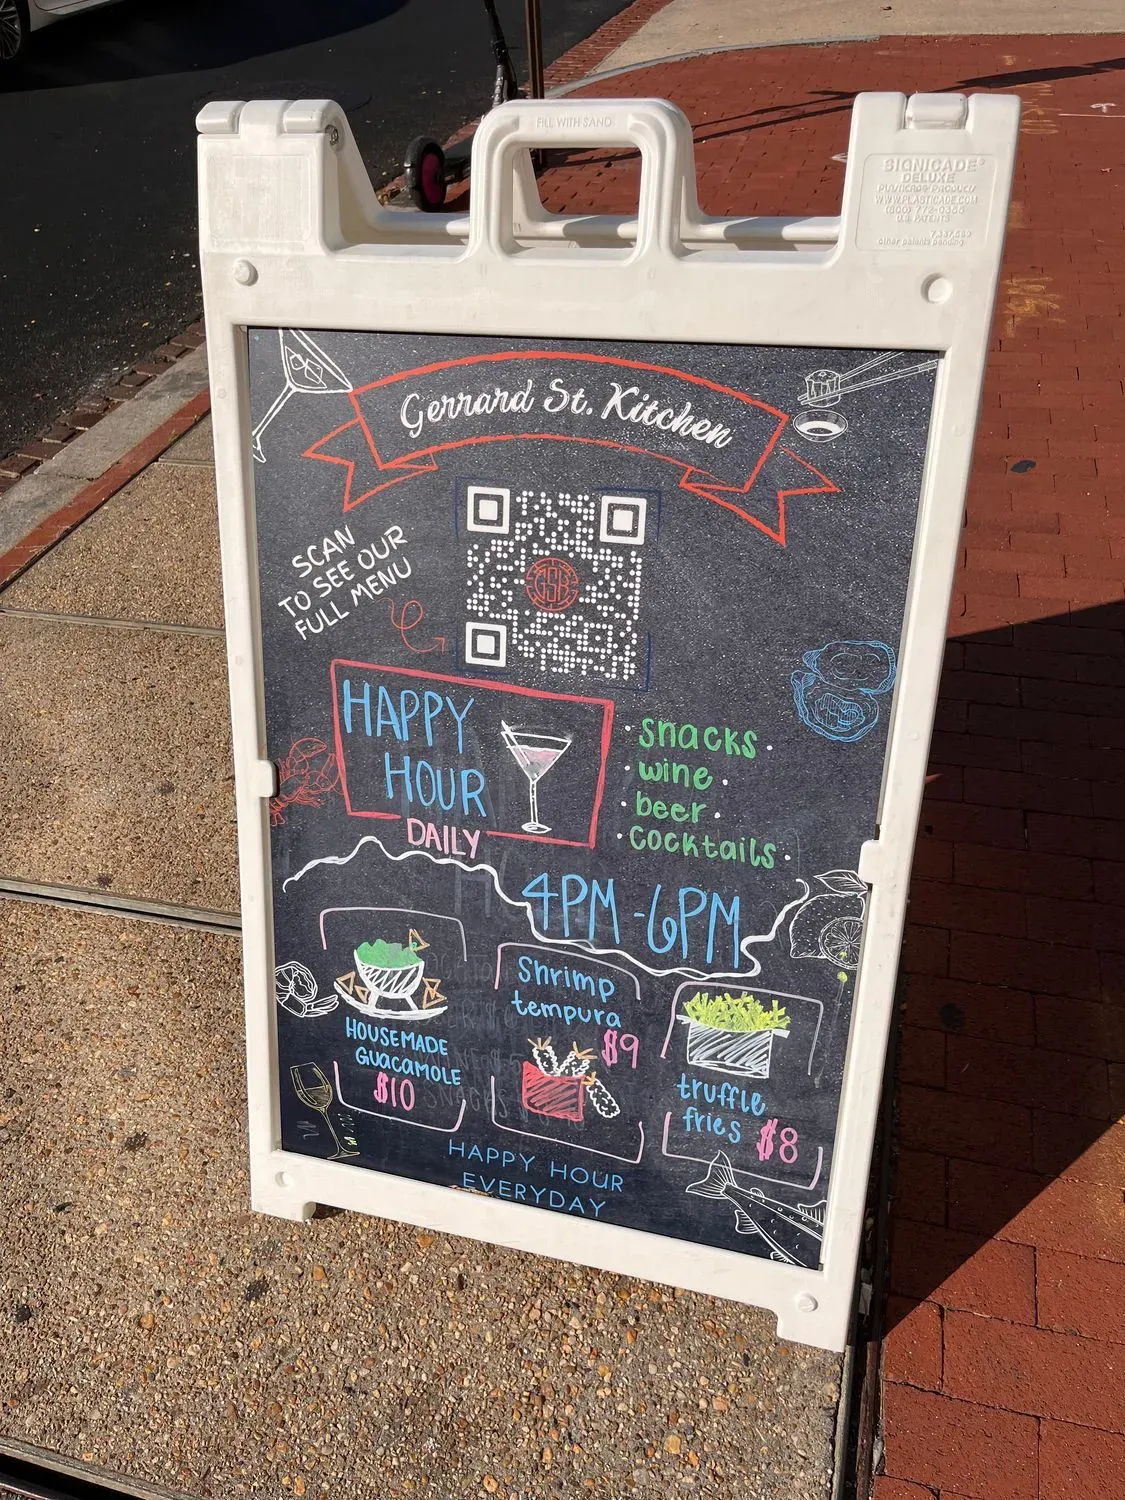 FILL WITH SAND
SIGNICADE®
DELUXE
PLASTICADE® PRODUCTS
WWW.PLASTICADE.COM
(800) 772-0355
U.S. PATENTS
7,337,569
other patents pending
Gerrard St. Kitchen
SCAN
TO SEE OUR
FULL MENU
GSK
HAPPY
HOUR
DAILY
· snacks ·
· wine ·
· beer ·
· cocktails ·
4PM - 6PM
HOUSEMADE
GUACAMOLE
$10
Shrimp
tempura
$9
truffle
fries $8
HAPPY HOUR
EVERYDAY